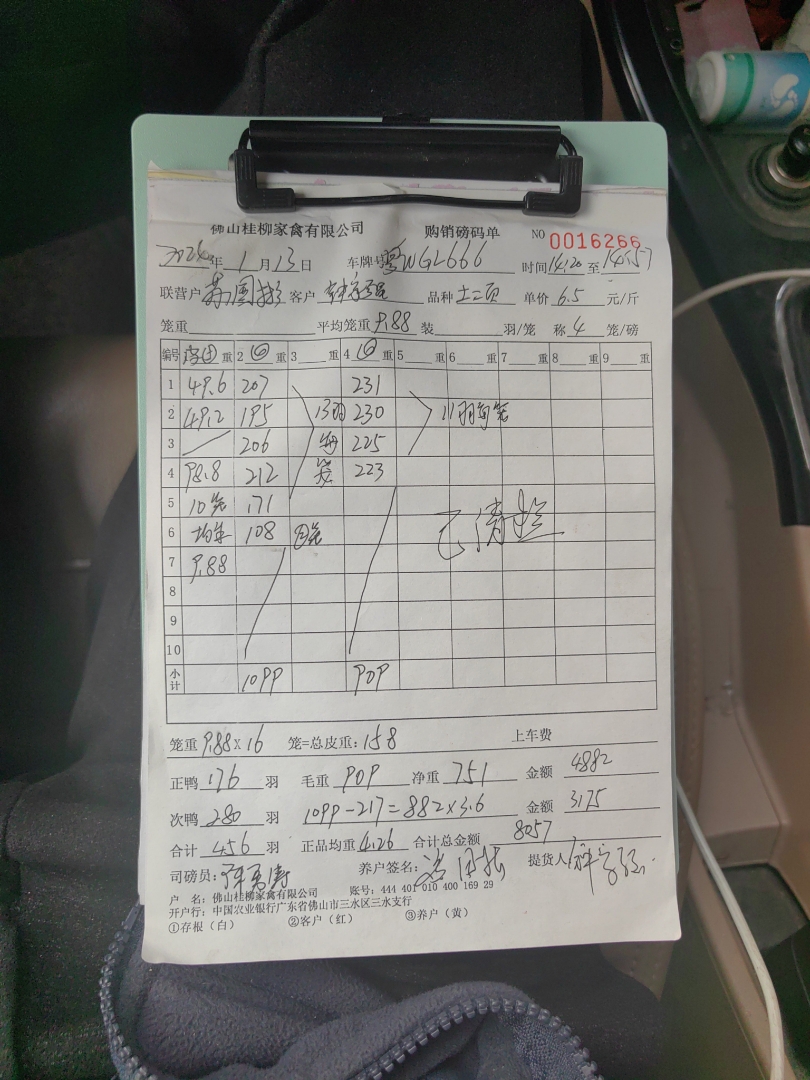 佛山桂柳家禽有限公司 购销磅码单 NO 0016266
2024年 1月13日 车牌号 粤WGL666 时间14:20至14:57
联营户 客户 品种 土二页 单价 6.5 元/斤
笼重 平均笼重 9.88 装 羽/笼 称 4 笼/磅
编号 重 2 重 3 重 4 重 5 重 6 重 7 重 8 重 9 重
1 49.6 207 231
2 49.2 195 13羽 230 11羽每笼
3 206 每 225
4 98.8 212 笼 223
5 10笼 171
6 均重 108 笼 已清
7 9.88
8
9
10
小计 1099 909
笼重 9.88×16 笼=总皮重:158 上车费
正鸭 176 羽 毛重 909 净重 751 金额 4882
次鸭 280 羽 1099-217=882×3.6 金额 3175
合计 456 羽 正品均重 4.26 合计总金额 8057
司磅员: 养户签名: 提货人
户 名:佛山桂柳家禽有限公司 账号:444 401 010 400 169 29
开户行:中国农业银行广东省佛山市三水区三水支行
①存根(白) ②客户(红) ③养户(黄)